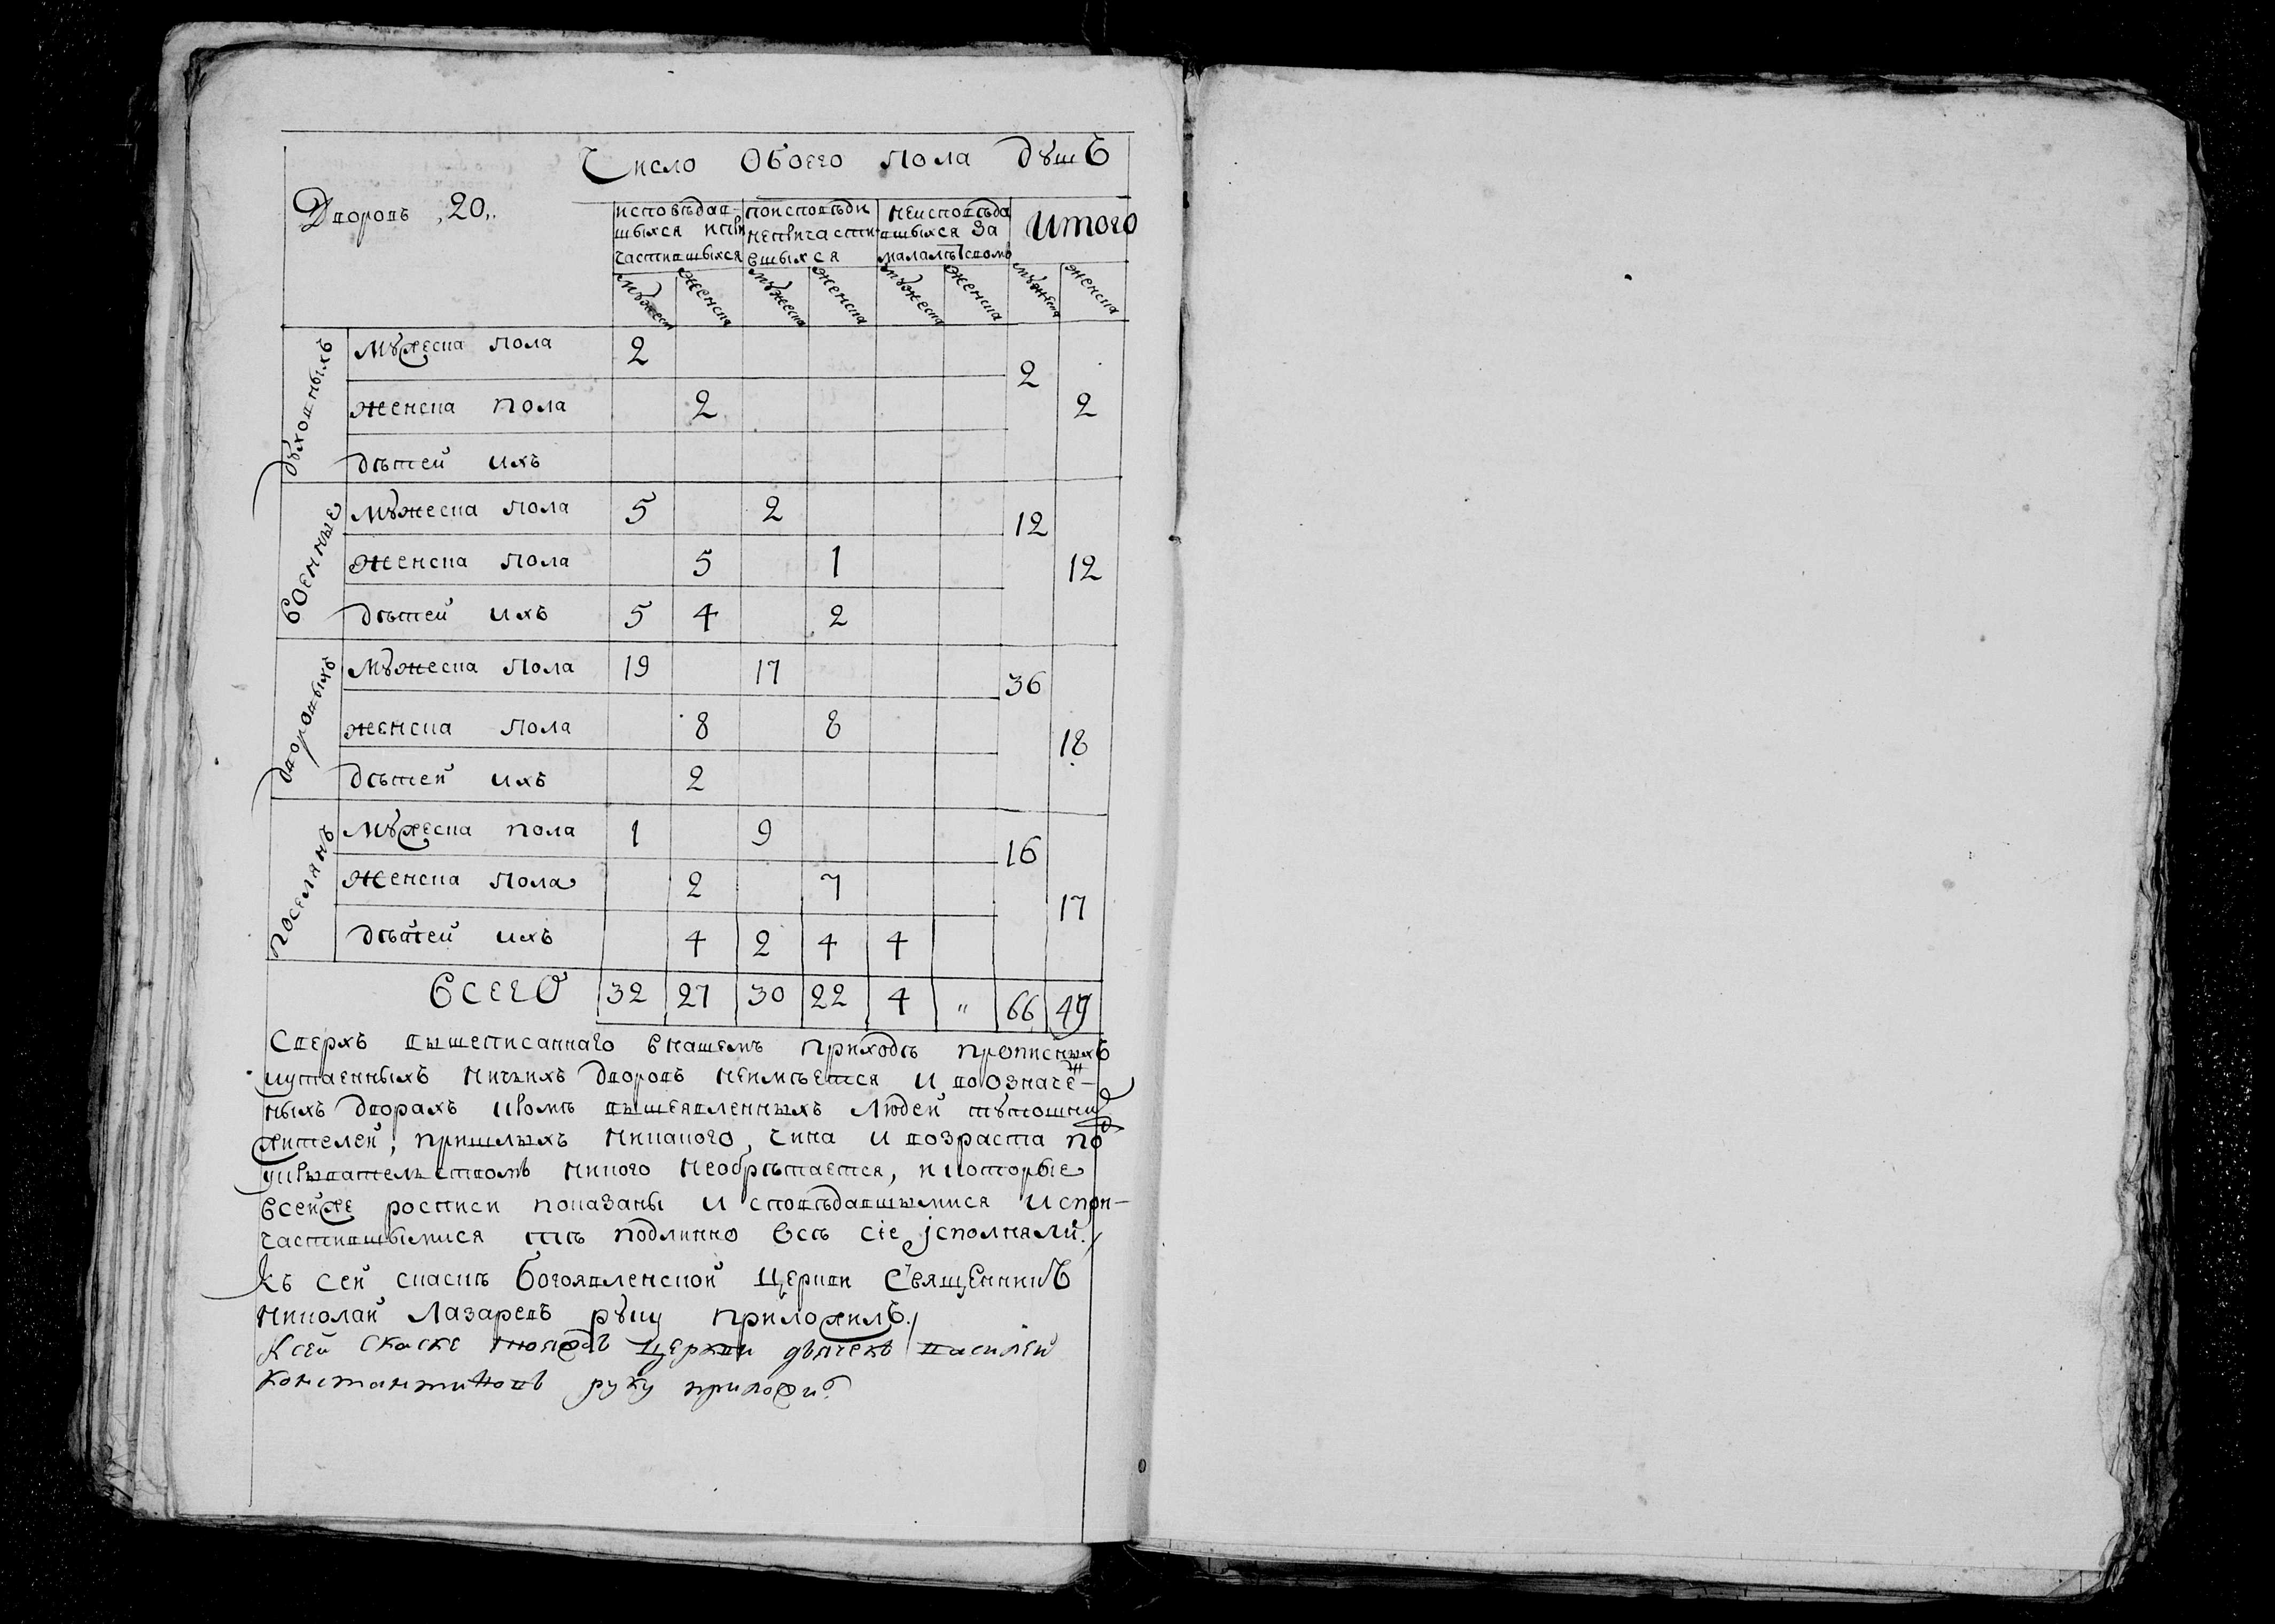 Число обоего пола дꙋшъ
Дворовъ 20.
исповѣдав- поисповѣди неисповѣда итого
шыхся ипри непричасти- вшыхся за
частившыхся вшыхся малалѣтсвомъ
мꙋжеск женска мꙋжеска женска мꙋжеска женска мꙋжеска женска
дꙋховныхъ
мꙋжеска пола 2 2
женска пола 2 2
дѣтей ихъ
военные
мꙋжеска пола 5 2 12
женска пола 5 1 12
дѣтей ихъ 5 4 2
дворовыхъ
мꙋжеска пола 19 17 36
женска пола 8 8 18
дѣтей ихъ 2
поселянъ
мꙋжеска пола 1 9 16
женска пола 2 7 17
дѣтей ихъ 4 2 4 4
всего 32 27 30 22 4 „ 66 49
Сверхъ вышеписаннаго внашемъ приходѣ прописныхъ
иутаенныхъ ничьихъ дворовъ неимѣется и воозначен-
ныхъ дворахъ кромѣ вышеявленныхъ людей тꙋтошних
жителей, пришлыхъ никакого, чина и возраста под
укрывателствомъ никого необрѣтается, икоторые
всейже росписи показаны исповѣдавшымися испри-
частившымися тѣ подлинно всѣ сіе јсполняли.
Къ сей скаскѣ Богоявленской церкви священникъ
николай Лазаревъ рꙋку приложилъ.
К сей скаске тояжъ церкви дьячекъ василей
константиновъ руку приложи